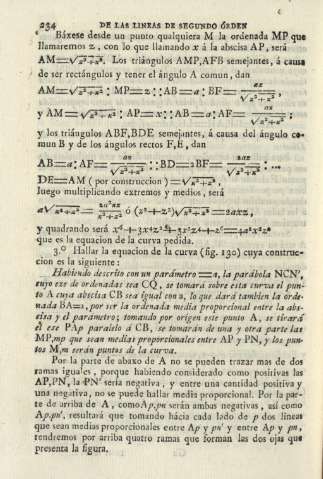 234 DE LAS LINEAS DE SEGUNDO ÓRDEN
Báxese desde un punto qualquiera M la ordenada MP que
llamaremos z, con lo que llamando x á la abscisa AP, será
AM=√z²+x². Los triángulos AMP,AFB semejantes, á causa
de ser rectángulos y tener el ángulo A comun, dan
AM=√z²+x² : MP=z :: AB=a : BF= az/√z²+x² ,
y AM=√z²+x² : AP=x :: AB=a : AF= ax/√z²+x² ;
y los triángulos ABF,BDE semejantes, á causa del ángulo co-
mun B y de los ángulos rectos F,E, dan
AB=a : AF= ax/√z²+x² :: BD=2BF= 2az/√z²+x² : ...
DE=AM (por construccion) =√z²+x² ,
luego multiplicando extremos y medios, será
a√z²+x² = 2a²zx/z²+x² ó (z²+x²)√z²+x² =2axz ,
y quadrando será x⁶+3x⁴z²+3x²z⁴+z⁶=4a²x²z²
que es la equacion de la curva pedida.
3.º Hallar la equacion de la curva (fig. 130) cuya construc-
cion es la siguiente:
Habiendo descrito con un parámetro =a, la parábola NCN',
cuyo exe de ordenadas sea CQ, se tomará sobre esta curva el pun-
to A cuya abscisa CB sea igual con a, lo que dará tambien la orde-
nada BA=a, por ser la ordenada media proporcional entre la abs-
cisa y el parámetro; tomando por origen este punto A, se tirará
el exe PAp paralelo á CB, se tomarán de una y otra parte las
MP,mp que sean medias proporcionales entre AP y PN, y los pun-
tos M,m serán puntos de la curva.
Por la parte de abaxo de A no se pueden trazar mas de dos
ramas iguales, porque habiendo considerado como positivas las
AP,PN, la PN' sería negativa, y entre una cantidad positiva y
una negativa, no se puede hallar media proporcional. Por la par-
te de arriba de A, como Ap,pn serán ambas negativas, así como
Ap,pn', resultará que tomando hácia cada lado de p dos lineas
que sean medias proporcionales entre Ap y pn' y entre Ap y pn,
tendremos por arriba quatro ramas que forman las dos ojas que
presenta la figura.